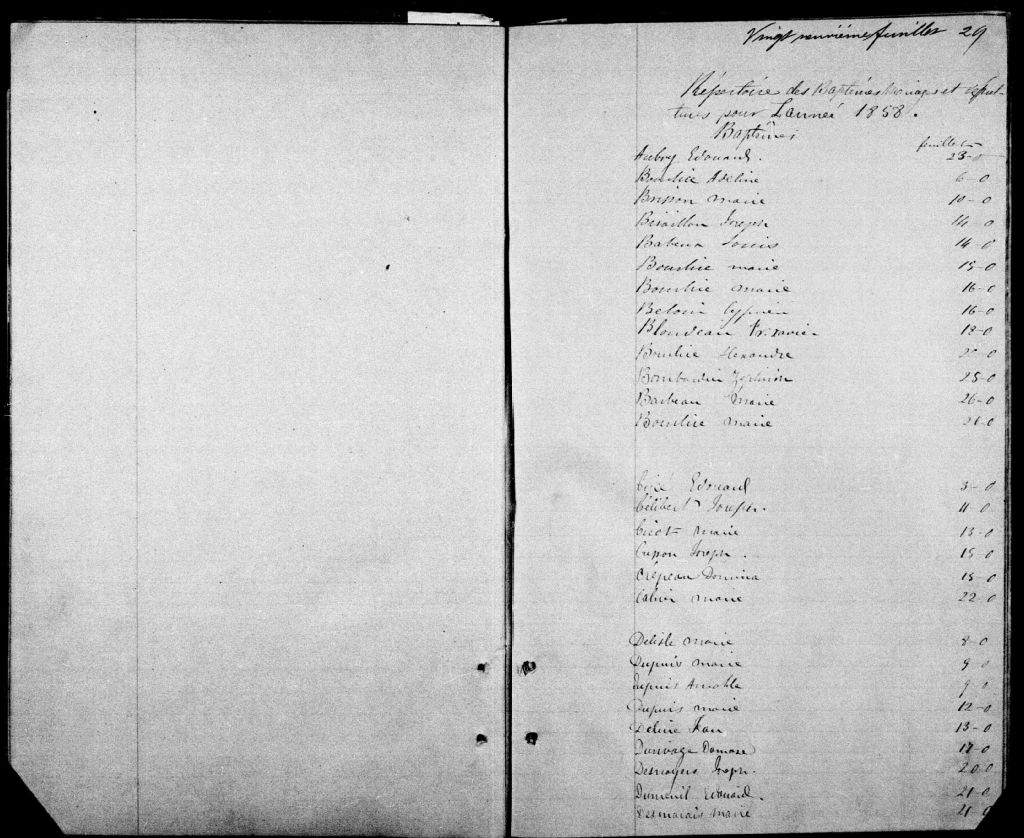 Vingt neuvième feuillet 29
Répertoire des Baptêmes Mariages et sépul-
tures pour L'année 1858.
Baptêmes
feuillets
Aubry Edouard. 23-0
Bourdice Adeline 6-0
Brisson marie 10-0
Bisaillon Joseph 14-0
Babeux Louis 14-0
marie 15-0
marie 16-0
16-0
Blondeau 18-0
Alexandre
Bombardier 25-0
Barbeau Marie 26-0
marie
Edouard 3-0
Célibert Joseph. 11-0
Cicot marie 13-0
Cusson Joseph. 15-0
Crépeau Domina 15-0
marie 22-0
Delisle marie 8-0
Dupuis marie 9-0
Dupuis Amable 9-0
Dupuis marie 12-0
Deline Jean 13-0
Durivage Damase 17-0
Desnoyers Joseph. 20-0
Dumenil Edouard. 21-0
Desmarais marie 21-0